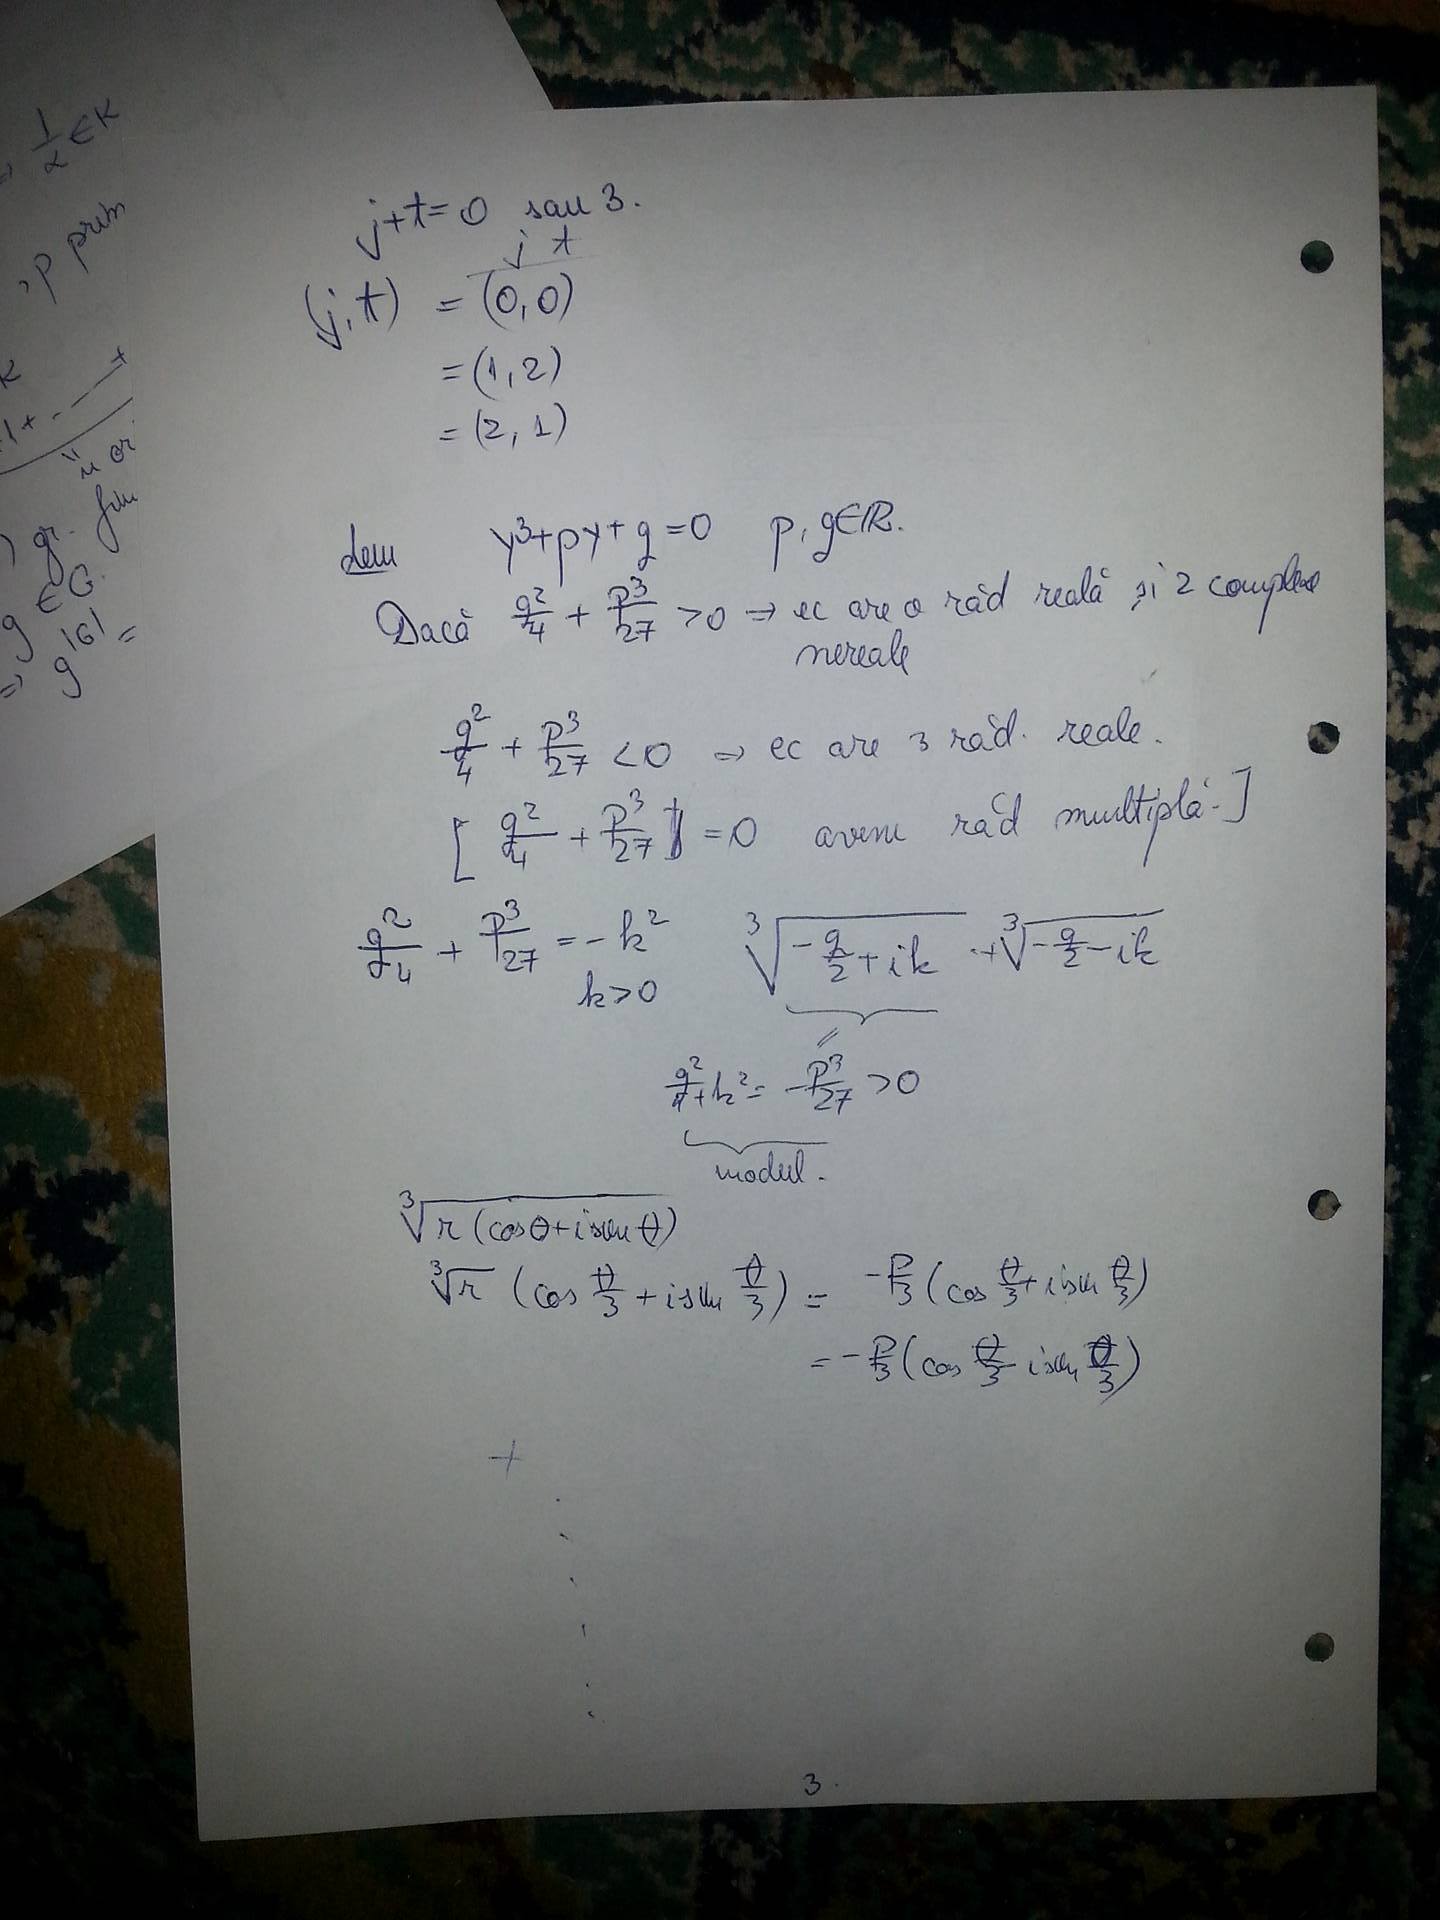 ⇒ 1/α ∈ K
, p prim
K
1 + . — +
"n or
) gr. fin
g ∈ G.
⇒ g^|G| =
j+t=0 sau 3.
j t
(j,t) = (0,0)
= (1,2)
= (2,1)
dem y³+py+q=0 p,q∈ℝ.
Dacă q²/4 + p³/27 >0 ⇒ ec are o răd reală și 2 complexe
nereale
q²/4 + p³/27 <0 ⇒ ec are 3 răd. reale.
[ q²/4 + p³/27 =0 avem răd multiplă.]
q²/4 + p³/27 = -k² ∛(-q/2+ik) + ∛(-q/2-ik)
k>0
=
q²/4+k²= -p³/27 >0
modul.
∛(r(cosθ+isinθ))
∛r (cos θ/3 + isin θ/3) = -p/3 (cos θ/3 + isin θ/3)
= -p/3 (cos θ/3 - isin θ/3)
+
3.